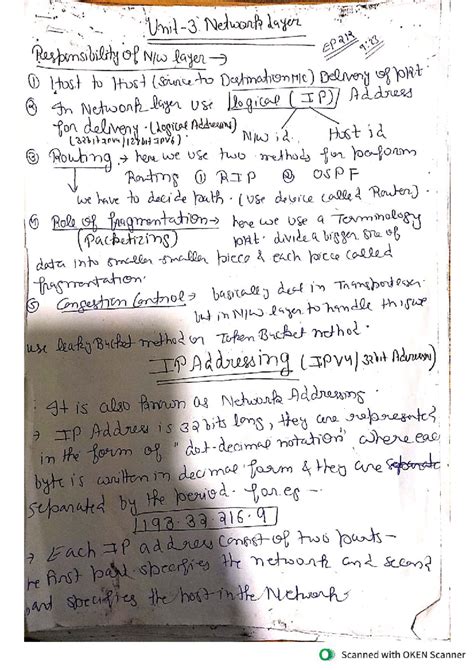 Unit-3 Network Layer
EP212
9:33
Responsibility of N/w layer →
① Host to Host (Source to Destination M/c) Delivery of pkt
② In Network layer use logical (IP) Address
for delivery. (Logical Addresses)
(32bit IPv4/128bit IPv6)
N/w id Host id
③ Routing → here we use two methods for perform
Routing ① RIP ② OSPF
we have to decide path. (Use device called Router).
④ Role of fragmentation → here we use a Terminology
(Packetizing) pkt. divide a bigger size of
data into smaller-smaller piece & each piece called
fragmentation.
⑤ Congestion Control → basically deal in Transport layer
but in N/w layer to handle this we
use leaky Bucket method or Token Bucket method.
IP Addressing (IPV4/32bit Address)
It is also known as Network Addressing
→ IP Address is 32 bits long, they are represented
in the form of "dot-decimal notation" where eac
byte is written in decimal form & they are separate
separated by the period. for eg –
193.32.216.9
→ Each IP address consist of two parts –
he first part specifies the network and second
part specifies the host in the Network.
Scanned with OKEN Scanner